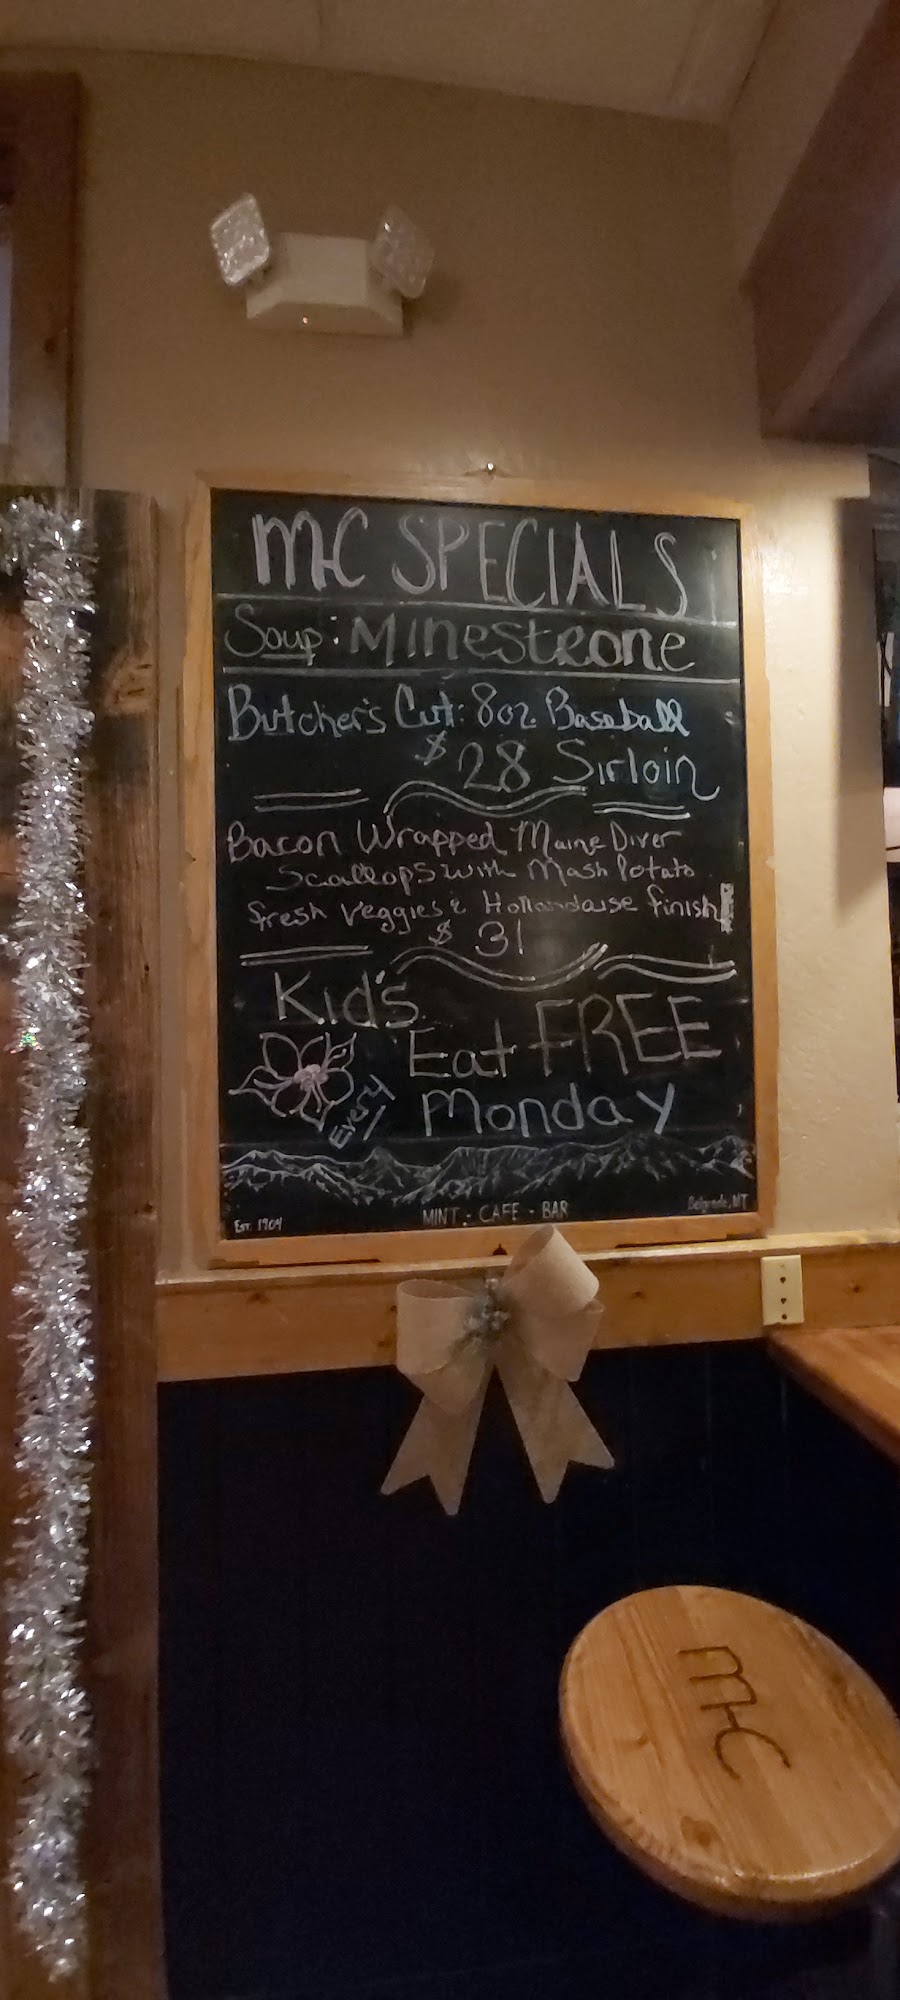 MC SPECIALS
Soup: Minesteone
Butcher's Cut: 8oz Baseball
$28 Sirloin
Bacon Wrapped Maine Diver
Scallops with Mash Potato
fresh veggies & Hollandaise finish!
$31
Kid's
Eat FREE
Every Monday
MINT - CAFE - BAR
Belgrade, MT
EST. 1904
MC